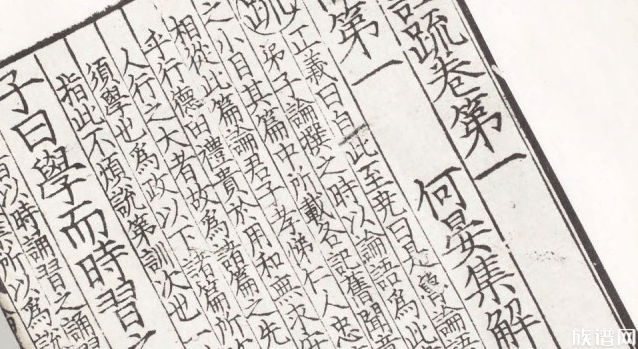 疏卷第一
第一 何晏集解
疏
正義曰自此至堯曰是魯論語
弟子論撰之時以論語為此
之小目其篇中所載各記舊聞意
相從此篇論君子孝悌仁人忠
乎行德由禮貴於用和無求
人行之大者故為諸篇之先
須學也為政以下諸篇所
指此不煩說第訓次也一
子曰學而時習之
以時誦習之誦習
所以為說
族谱网